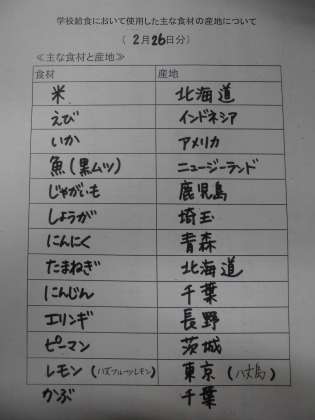 学校給食において使用した主な食材の産地について
(2月26日分)
≪主な食材と産地≫
食材 産地
米 北海道
えび インドネシア
いか アメリカ
魚(黒ムツ) ニュージーランド
じゃがいも 鹿児島
しょうが 埼玉
にんにく 青森
たまねぎ 北海道
にんじん 千葉
エリンギ 長野
ピーマン 茨城
レモン(ハズフルーツレモン) 東京(八丈島)
かぶ 千葉